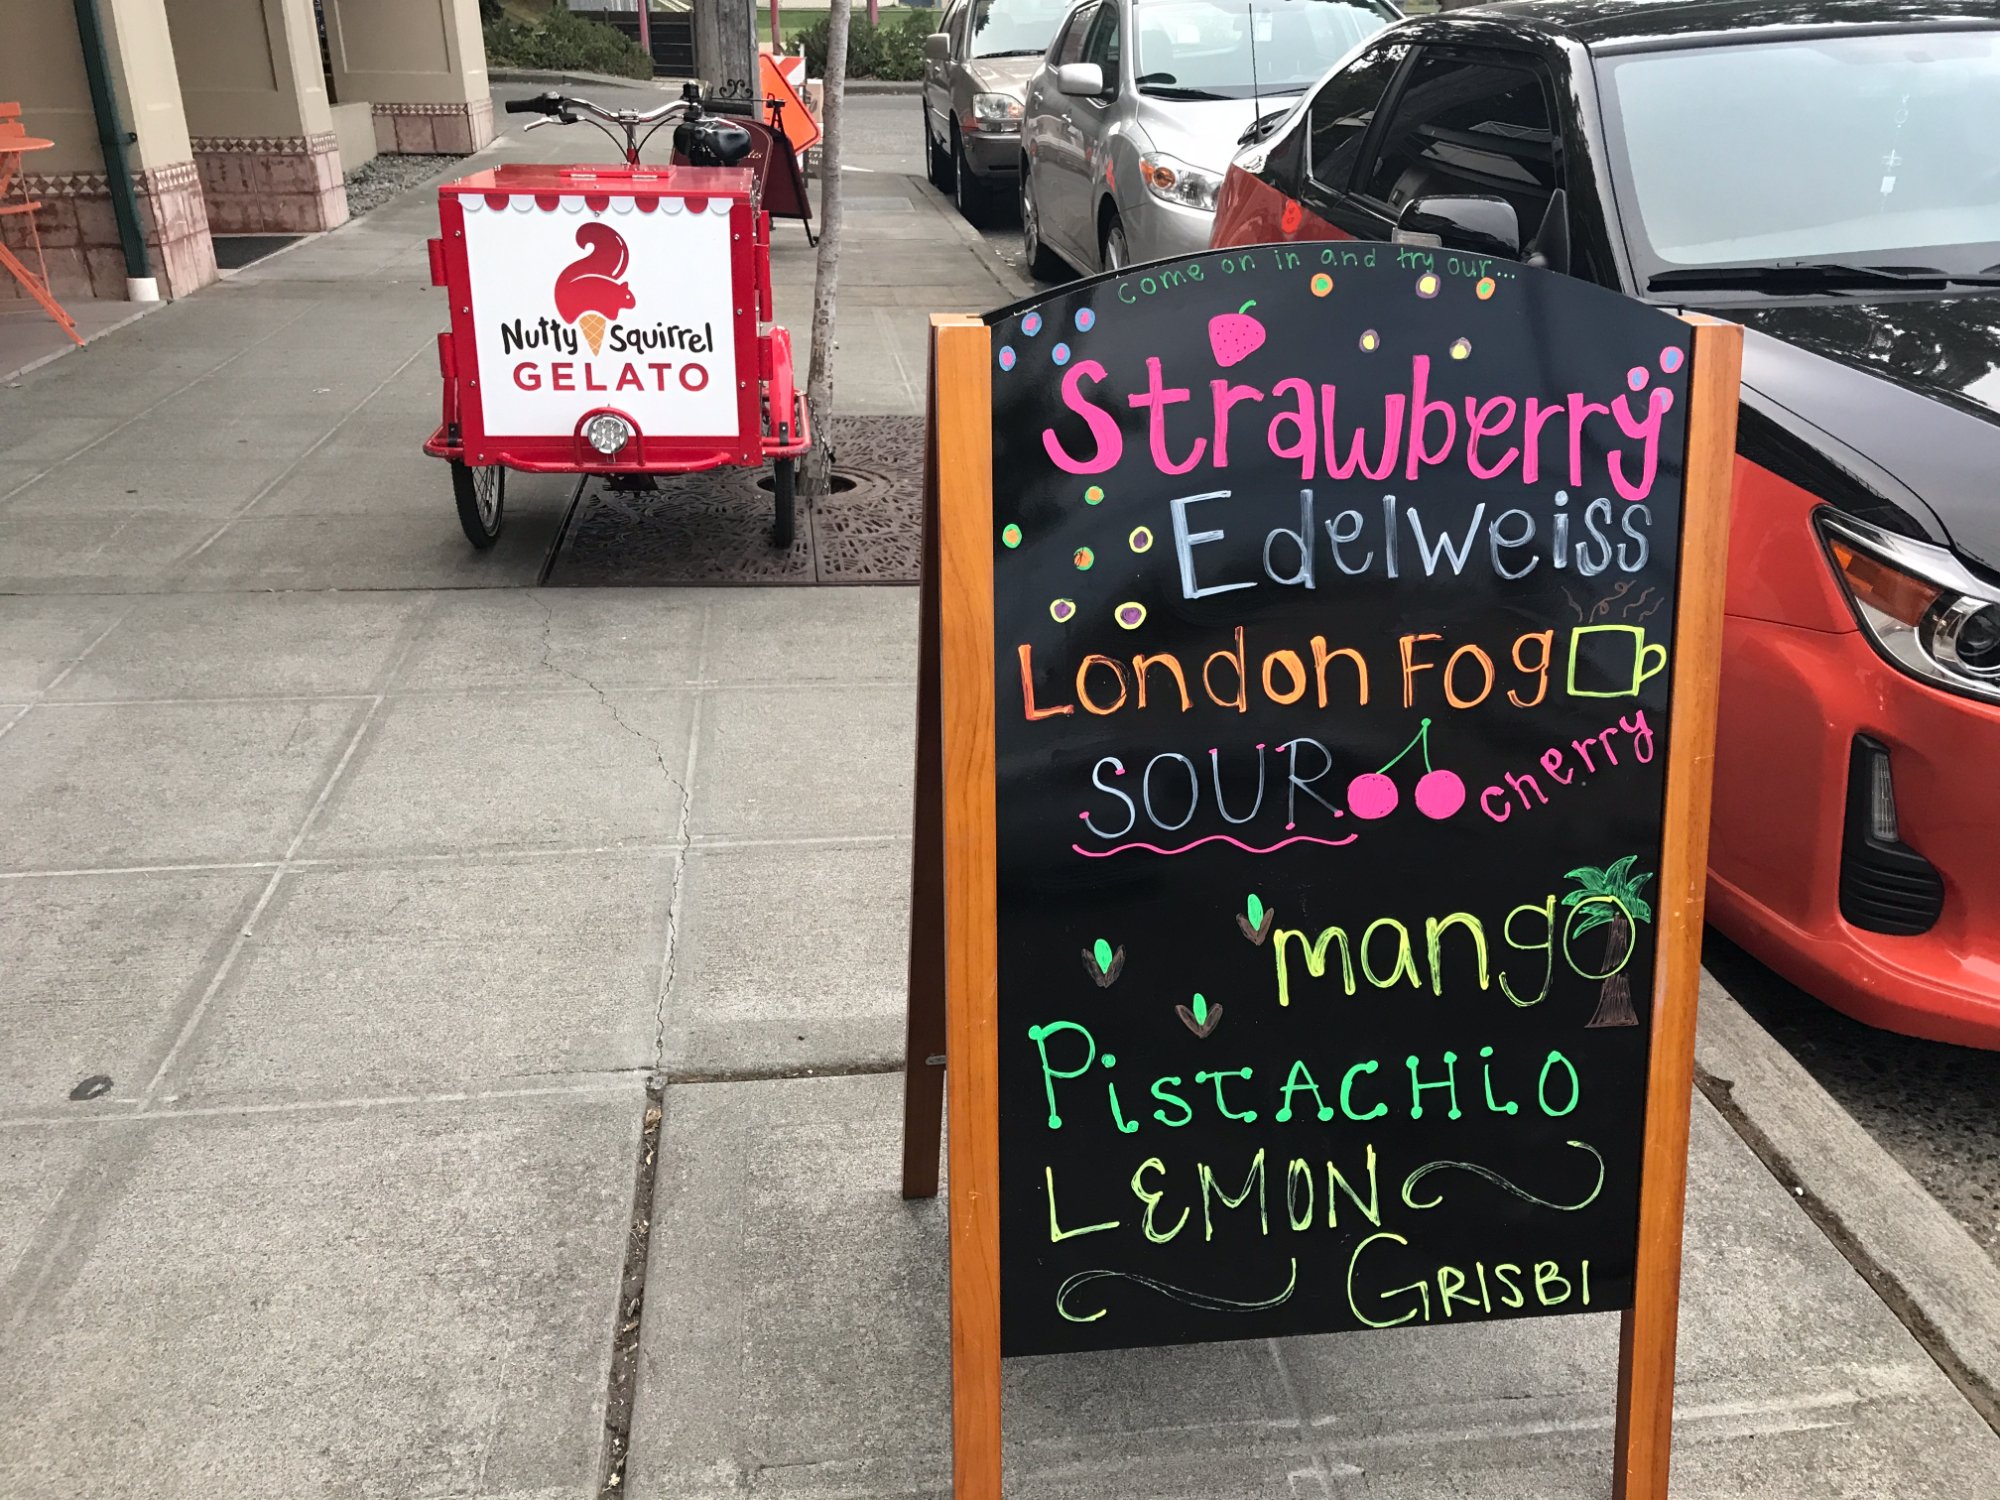 Nutty Squirrel
GELATO
come on in and try our...
Strawberry
Edelweiss
London Fog
SOUR cherry
mango
PiSTACHiO
LEMON
GRISBI